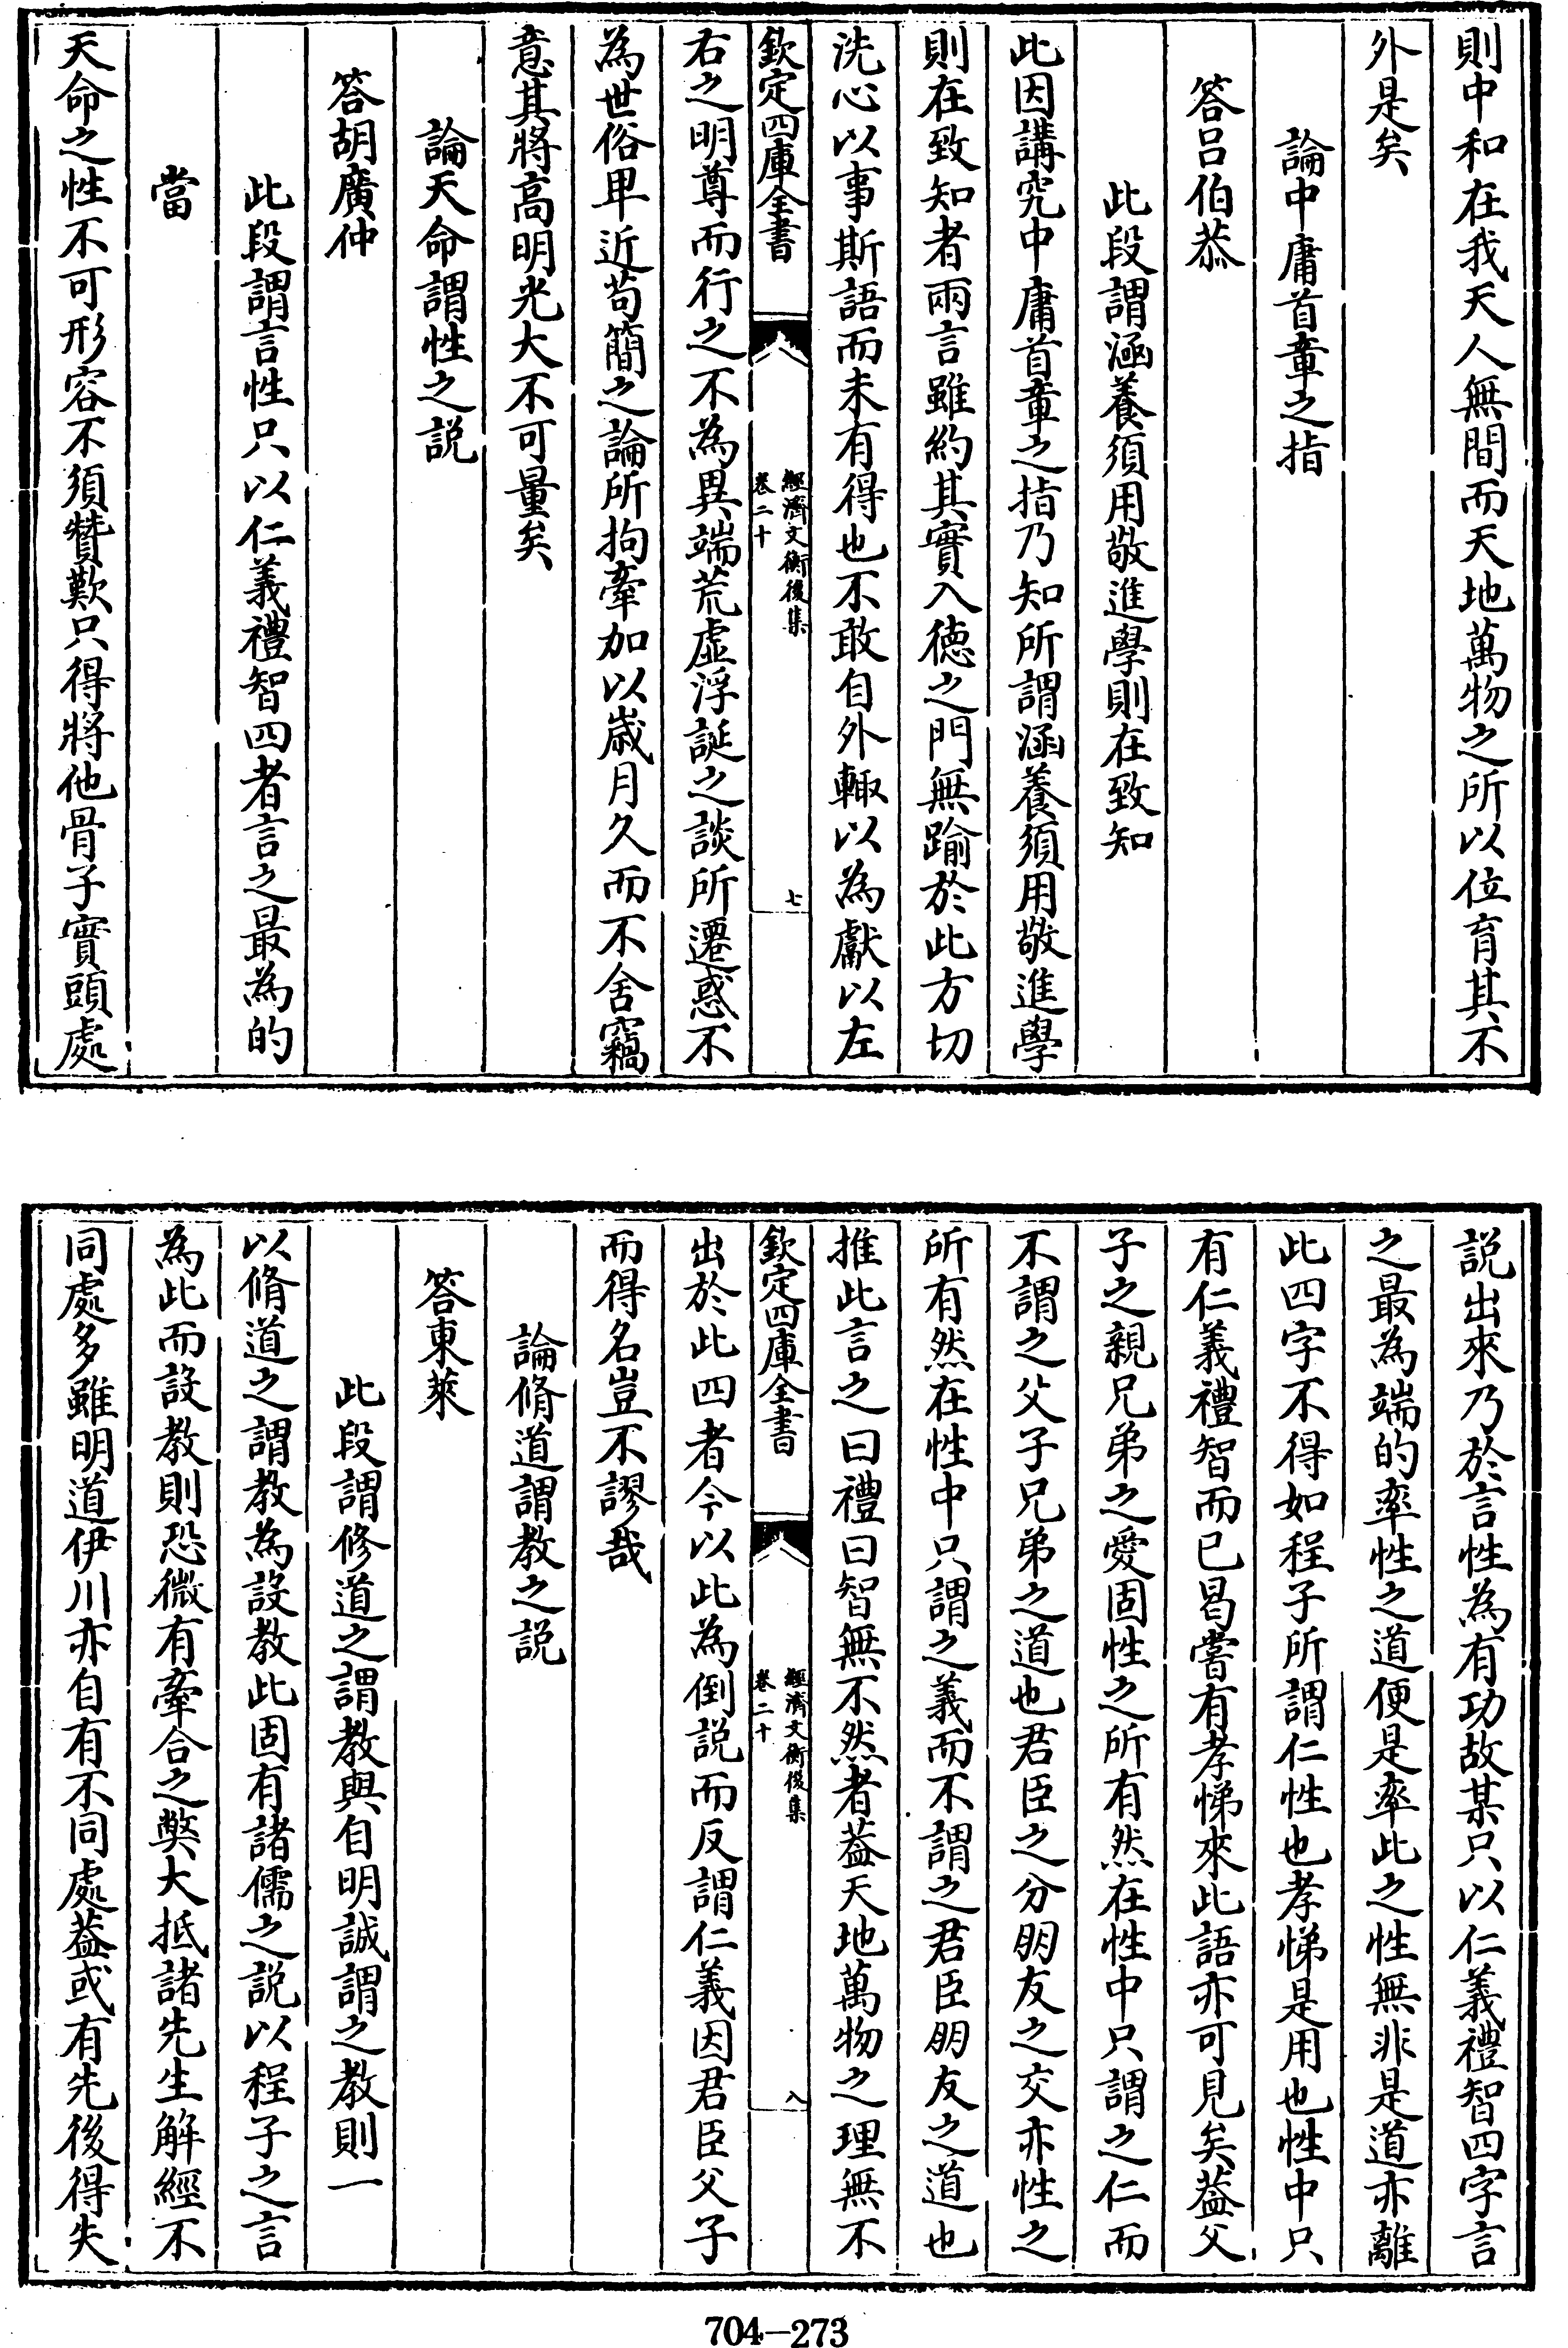 則中和在我天人無間而天地萬物之所以位育其不
外是矣
論中庸首章之指
答吕伯恭
此段謂涵養須用敬進學則在致知
此因講究中庸首章之指乃知所謂涵養須用敬進學
則在致知者兩言雖約其實入徳之門無踰於此方切
洗心以事斯語而未有得也不敢自外輙以為獻以左
欽定四庫全書
經濟文衡後集
卷二十
七
右之明尊而行之不為異端荒虛浮誕之談所遷惑不
為世俗卑近苟簡之論所拘牽加以歲月久而不舍竊
意其將高明光大不可量矣
論天命謂性之説
答胡廣仲
此段謂言性只以仁義禮智四者言之最為的
當
天命之性不可形容不須贊歎只得將他骨子實頭處
説出來乃於言性為有功故某只以仁義禮智四字言
之最為端的率性之道便是率此之性無非是道亦離
此四字不得如程子所謂仁性也孝悌是用也性中只
有仁義禮智而已曷嘗有孝悌來此語亦可見矣葢父
子之親兄弟之愛固性之所有然在性中只謂之仁而
不謂之父子兄弟之道也君臣之分朋友之交亦性之
所有然在性中只謂之義而不謂之君臣朋友之道也
推此言之曰禮曰智無不然者葢天地萬物之理無不
欽定四庫全書
經濟文衡後集
卷二十
八
出於此四者今以此為倒説而反謂仁義因君臣父子
而得名豈不謬哉
論脩道謂教之説
答東萊
此段謂修道之謂教與自明誠謂之教則一
以脩道之謂教為設教此固有諸儒之説以程子之言
為此而設教則恐微有牽合之獘大抵諸先生解經不
同處多雖明道伊川亦自有不同處葢或有先後得失
704—273